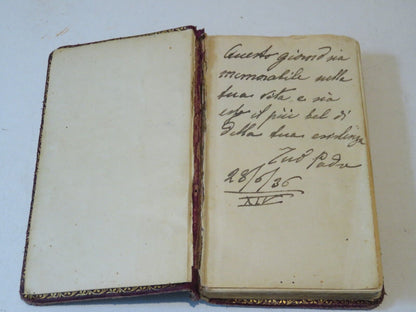 Questo giorno sia
memorabile nella
tua vita e sia
esso il più bel dì
della tua esistenza
Tuo Padre
28/6/36
XIV